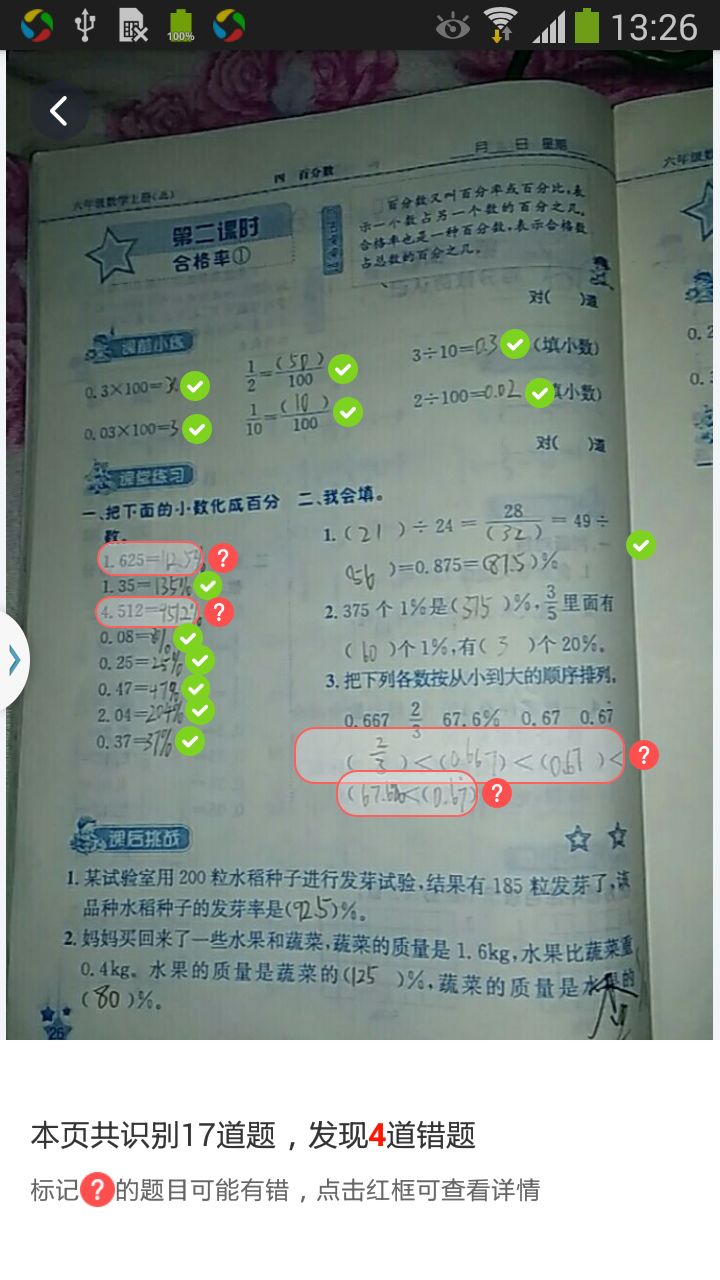 100%
13:26
月 日 星期
六年级数学上册(北)
四 百分数
六年级数
第二课时
合格率①
百分数又叫百分率或百分比,表
示一个数占另一个数的百分之几。
合格率也是一种百分数,表示合格数
占总数的百分之几。
对( )道
课前小练
0.3×100=
1/2=(50)/100
3÷10=0.3 (填小数)
0.03×100=3
1/10=(10)/100
2÷100=0.02 填小数)
对( )道
课堂练习
一、把下面的小数化成百分
数。
1.625=
1.35=135%
4.512=
0.08=8%
0.25=25%
0.47=47%
2.04=204%
0.37=37%
二、我会填。
1.(21)÷24=28/(32)=49÷
(56)=0.875=(87.5)%
2.375个1%是(375)%,3/5里面有
(60)个1%,有(3)个20%。
3.把下列各数按从小到大的顺序排列。
0.667 2/3 67.6% 0.67 0.67̇
(2/3)<(0.667)<(0.67)<
(67.6%<(0.67̇)
课后挑战
1.某试验室用200粒水稻种子进行发芽试验,结果有185粒发芽了,该
品种水稻种子的发芽率是(92.5)%。
2.妈妈买回来了一些水果和蔬菜,蔬菜的质量是1.6kg,水果比蔬菜重
0.4kg。水果的质量是蔬菜的(125)%,蔬菜的质量是水果的
(80)%。
26
本页共识别17道题，发现4道错题
标记?的题目可能有错，点击红框可查看详情